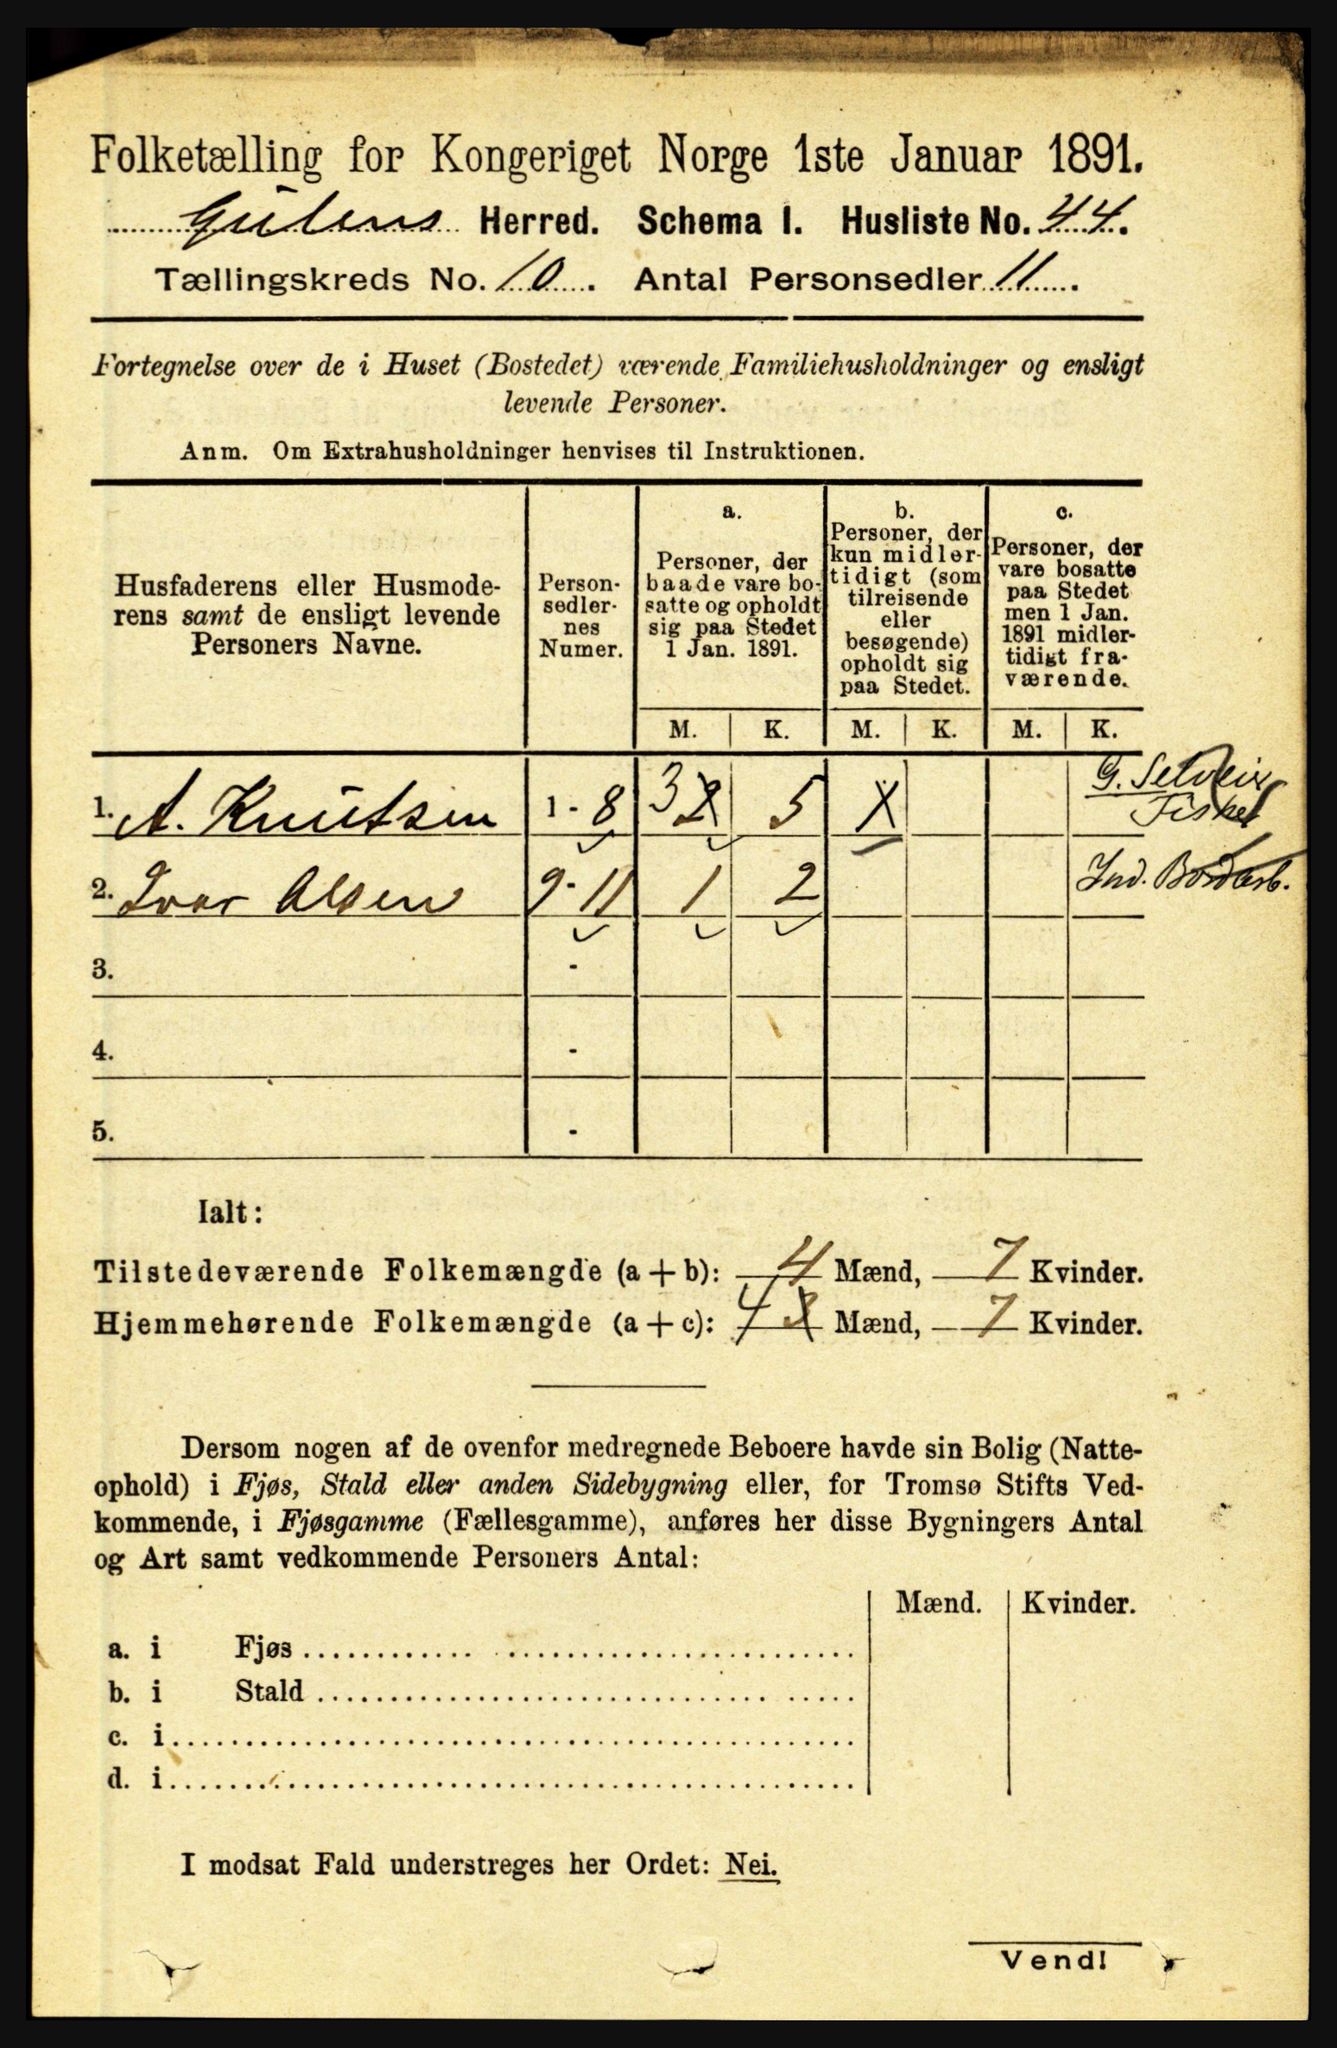 Folketælling for Kongeriget Norge 1ste Januar 1891.
Gulens Herred. Schema I. Husliste No. 44.
Tællingskreds No. 10. Antal Personsedler 11.
Fortegnelse over de i Huset (Bostedet) værende Familiehusholdninger og ensligt
levende Personer.
Anm. Om Extrahusholdninger henvises til Instruktionen.
Husfaderens eller Husmode-
rens samt de ensligt levende
Personers Navne.
Person-
sedler-
nes
Numer.
a.
Personer, der
baade vare bo-
satte og opholdt
sig paa Stedet
1 Jan. 1891.
b.
Personer, der
kun midler-
tidigt (som
tilreisende
eller
besøgende)
opholdt sig
paa Stedet.
c.
Personer, der
vare bosatte
paa Stedet
men 1 Jan.
1891 midler-
tidigt fra-
værende.
M. K. M. K. M. K.
1. A. Knutsen 1 - 8 3 2 5 G. Selveier
Fisker
2. Ivar Olsen 9 - 11 1 2 Ind. Bordarb.
3. -
4. -
5. -
Ialt:
Tilstedeværende Folkemængde (a + b): 4 Mænd, 7 Kvinder.
Hjemmehørende Folkemængde (a + c): 4 3 Mænd, 7 Kvinder.
Dersom nogen af de ovenfor medregnede Beboere havde sin Bolig (Natte-
ophold) i Fjøs, Stald eller anden Sidebygning eller, for Tromsø Stifts Ved-
kommende, i Fjøsgamme (Fællesgamme), anføres her disse Bygningers Antal
og Art samt vedkommende Personers Antal:
Mænd. Kvinder.
a. i Fjøs
b. i Stald
c. i
d. i
I modsat Fald understreges her Ordet: Nei.
Vend!